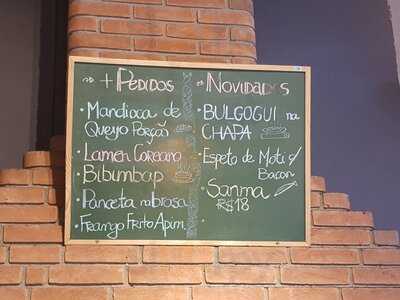 + PEDIDOS
• Mandioca de
Queijo Porção
• Lamen Coreano
• Bibimbap
• Panceta saborosa
• Frango Frito Apim.
NOVIDADES
• BULGOGUI na
CHAPA
• Espeto de Moti c/
Bacon
• Sanma
R$18